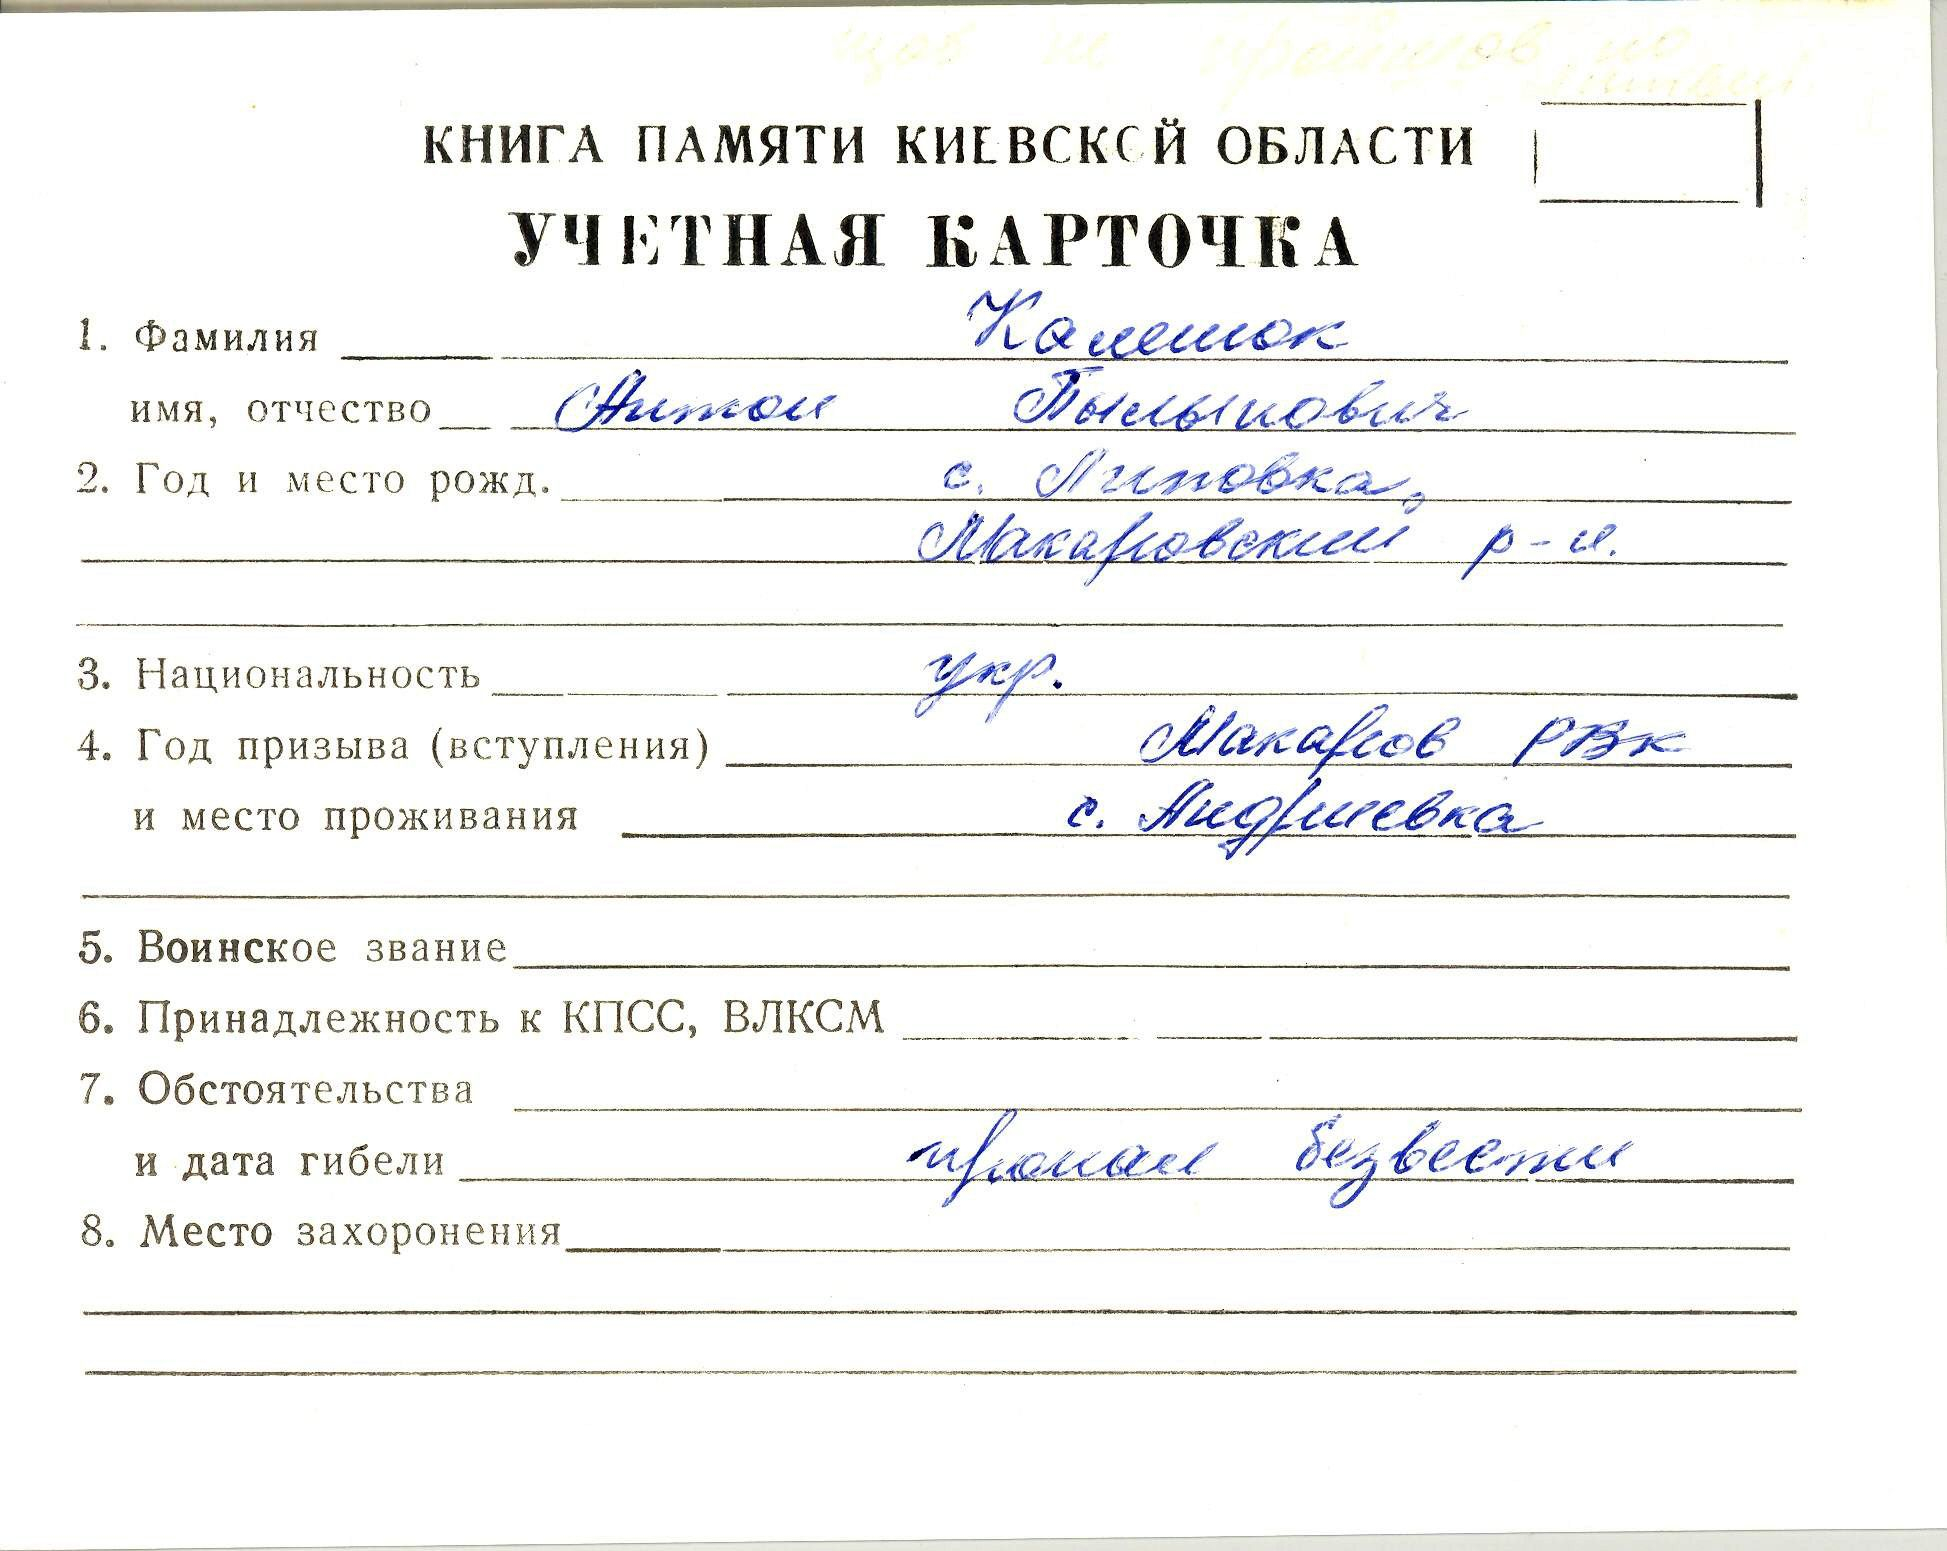 КНИГА ПАМЯТИ КИЕВСКОЙ ОБЛАСТИ
УЧЕТНАЯ КАРТОЧКА
1. Фамилия
имя, отчество Антон Пылыпович
2. Год и место рожд. с. Липовка,
Макаровский р-н.
3. Национальность укр.
4. Год призыва (вступления) Макаров РВК
и место проживания с. Андриевка
5. Воинское звание
6. Принадлежность к КПСС, ВЛКСМ
7. Обстоятельства
и дата гибели пропал безвести
8. Место захоронения